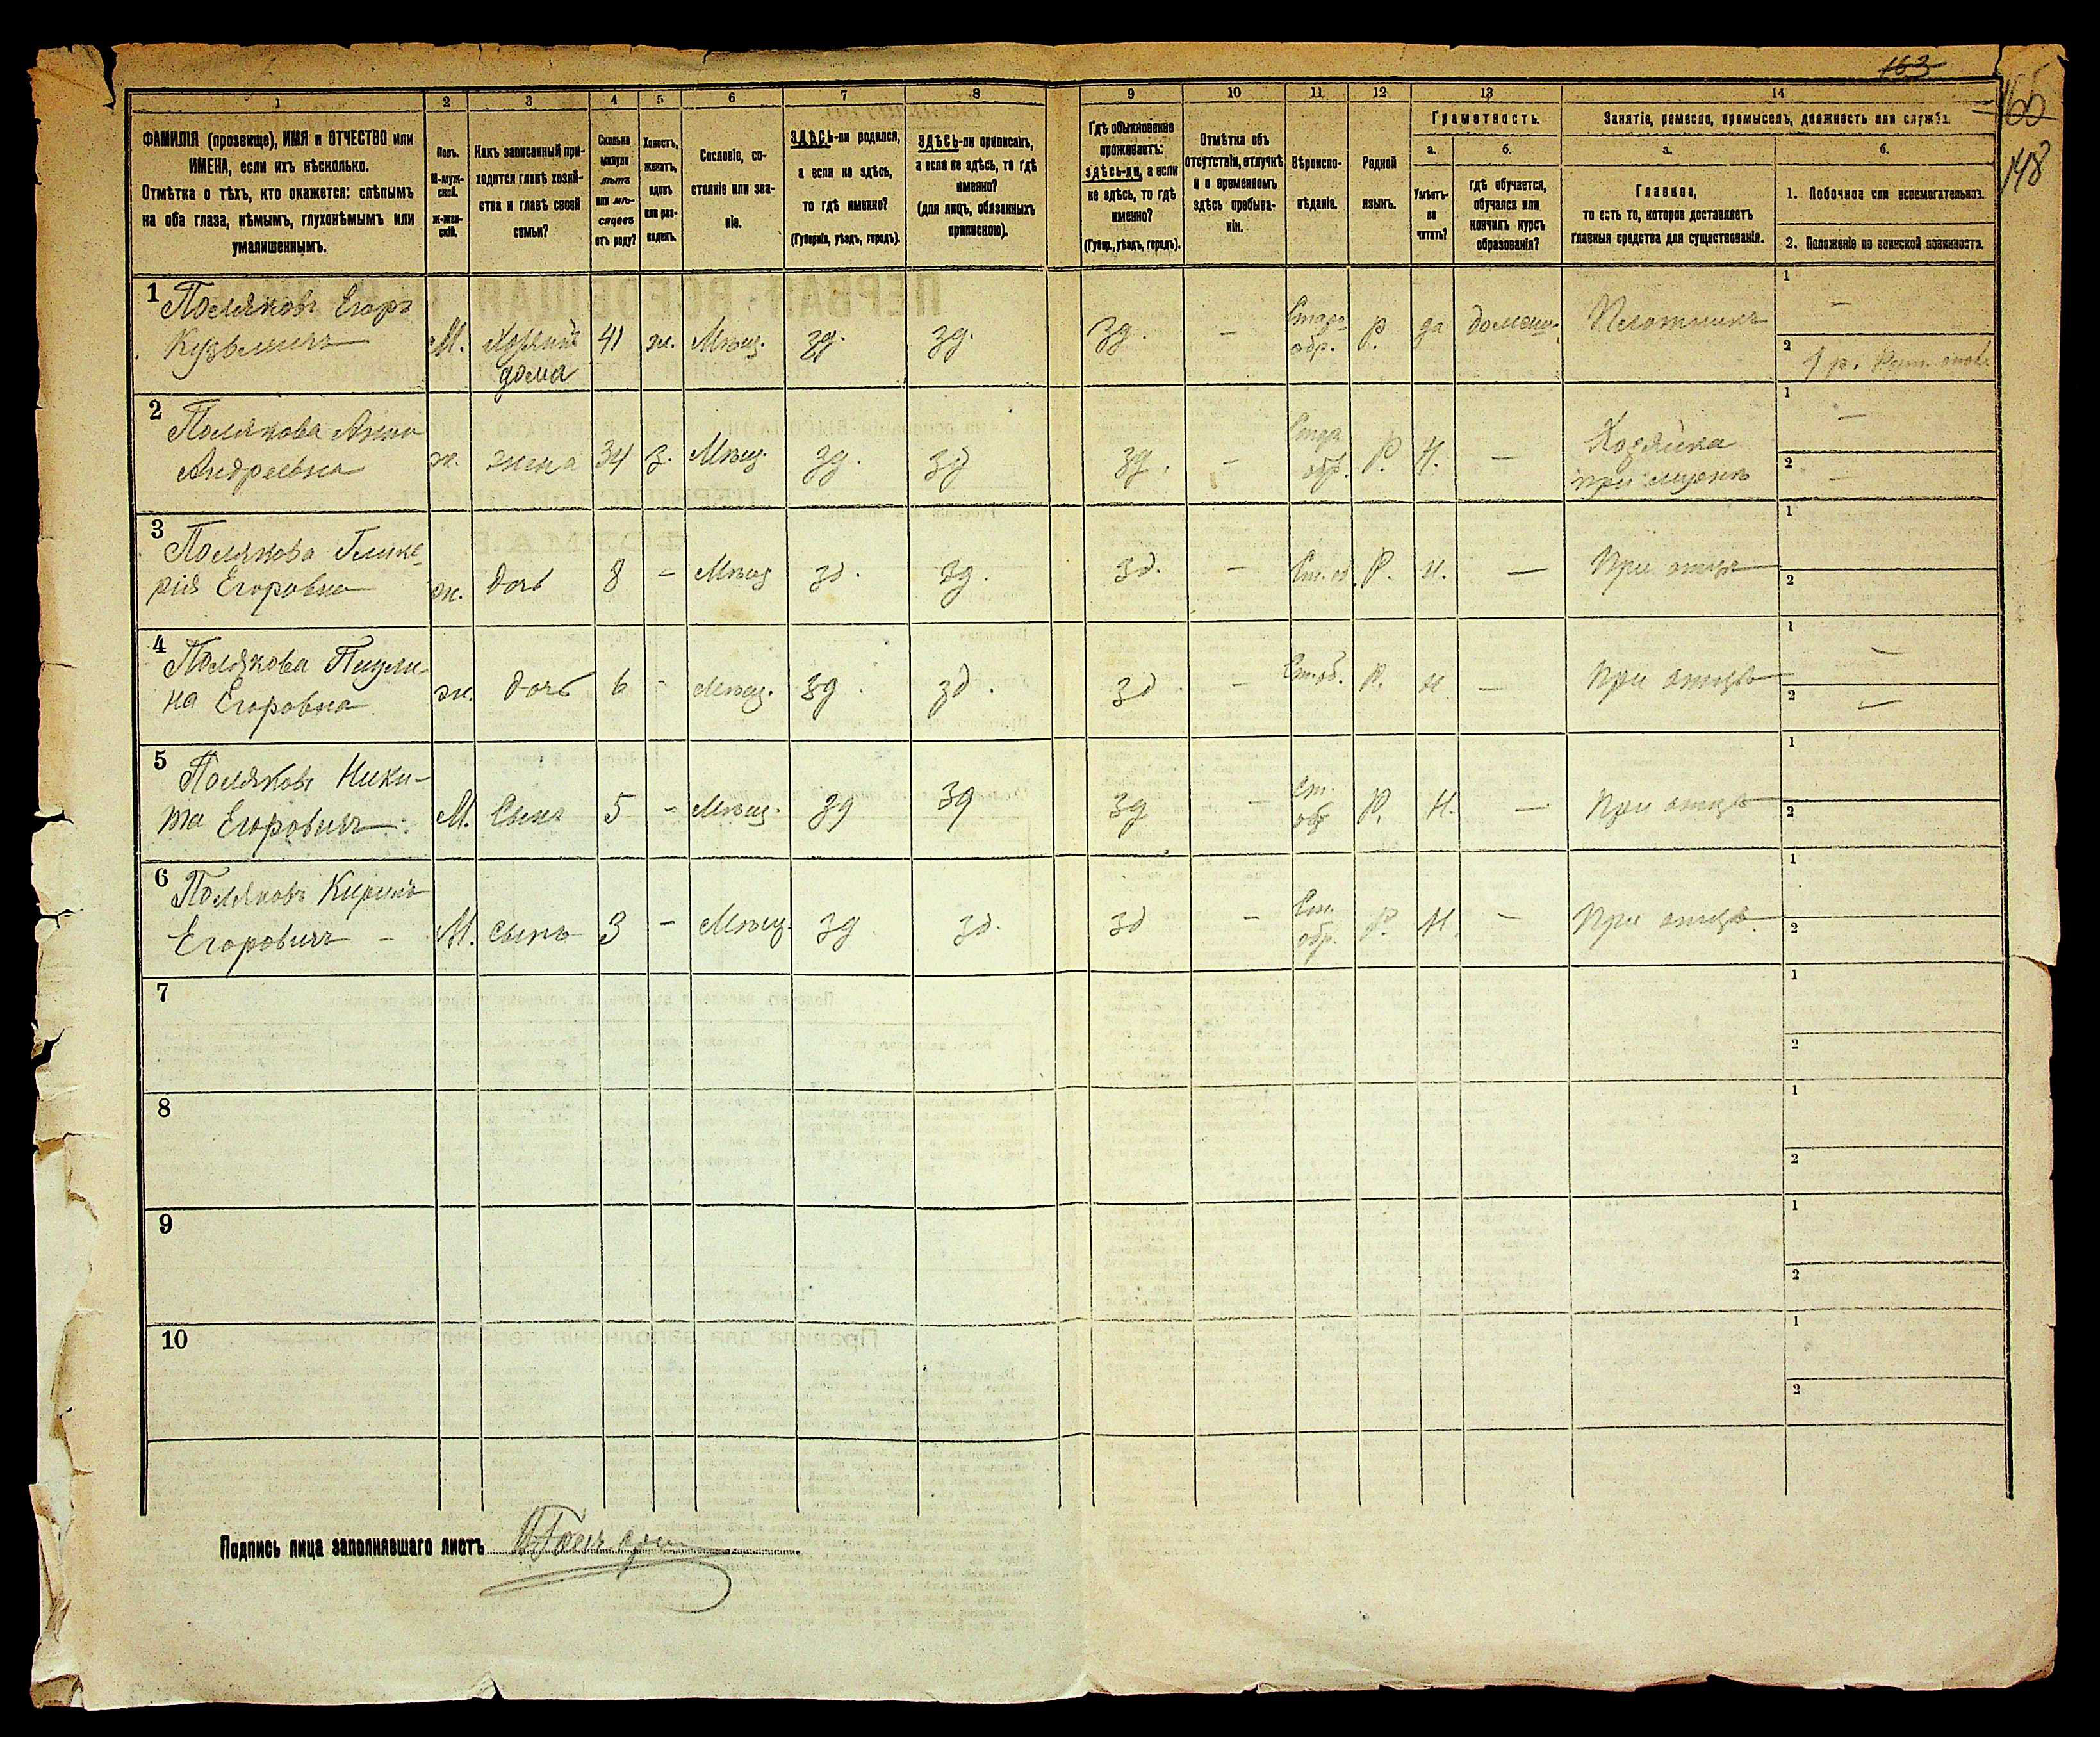 163
165
148
1 2 3 4 5 6 7 8 9 10 11 12 13 14
ФАМИЛІЯ (прозвище), ИМЯ и ОТЧЕСТВО или
ИМЕНА, если ихъ нѣсколько.
Отмѣтка о тѣхъ, кто окажется: слѣпымъ
на оба глаза, нѣмымъ, глухонѣмымъ или
умалишеннымъ.
Полъ.
М-муж-
ской.
Ж-жен-
скій.
Какъ записанный при-
ходится главѣ хозяй-
ства и главѣ своей
семьи?
Сколько
минуло
лѣтъ
или мѣ-
сяцевъ
отъ роду?
Холостъ,
женатъ,
вдовъ
или раз-
веденъ.
Сословіе, со-
стояніе или зва-
ніе.
ЗДѢСЬ-ли родился,
а если не здѣсь,
то гдѣ именно?
(Губернія, уѣздъ, городъ).
ЗДѢСЬ-ли приписанъ,
а если не здѣсь, то гдѣ
именно?
(для лицъ, обязанныхъ
припискою).
Гдѣ обыкновенно
проживаетъ:
здѣсь-ли, а если
не здѣсь, то гдѣ
именно?
(Губер., уѣздъ, городъ).
Отмѣтка объ
отсутствіи, отлучкѣ
и о временномъ
здѣсь пребыва-
ніи.
Вѣроиспо-
вѣданіе.
Родной
языкъ.
Грамотность.
а.
Умѣетъ-
ли
читать?
б.
гдѣ обучается,
обучался или
кончилъ курсъ
образованія?
Занятіе, ремесло, промыселъ, должность или служба.
а.
Главное,
то есть то, которое доставляетъ
главныя средства для существованія.
б.
1. Побочное или вспомогательное.
2. Положеніе по воинской повинности.
1 Поляковъ Егоръ
Кузьмичъ М. Хозяинъ 41 ж. Мѣщ. зд. зд. зд. — Старо- Р. да домаш. Плотникъ 1 —
дома обр. 2
2 Полякова Анна
Андреевна ж. жена 34 З. Мѣщ. зд. зд зд. — Стар. Р. Н. — Хозяйка 1 —
обр. при мужѣ 2 —
3 Полякова Глике-
рія Егоровна ж. дочь 8 – Мѣщ зд. зд. зд. — Ст. об. Р. Н. — При отцѣ 1
2
4 Полякова
на Егоровна ж. дочь 6 – Мѣщ. зд. зд. зд — Ст. об. Р. Н — При отцѣ 1 —
2 —
5 Поляковъ Ники-
та Егоровичъ М. Сынъ 5 – Мѣщ. зд зд зд — Ст. Р. Н. — При отцѣ 1
обр 2
6 Поляковъ Кирилъ
Егоровичъ – М. сынъ 3 – Мѣщ. зд зд. зд — Ст. Р. Н. – При отцѣ 1
обр. 2
7 1
2
8 1
2
9 1
2
10 1
2
Подпись лица заполнявшаго листъ